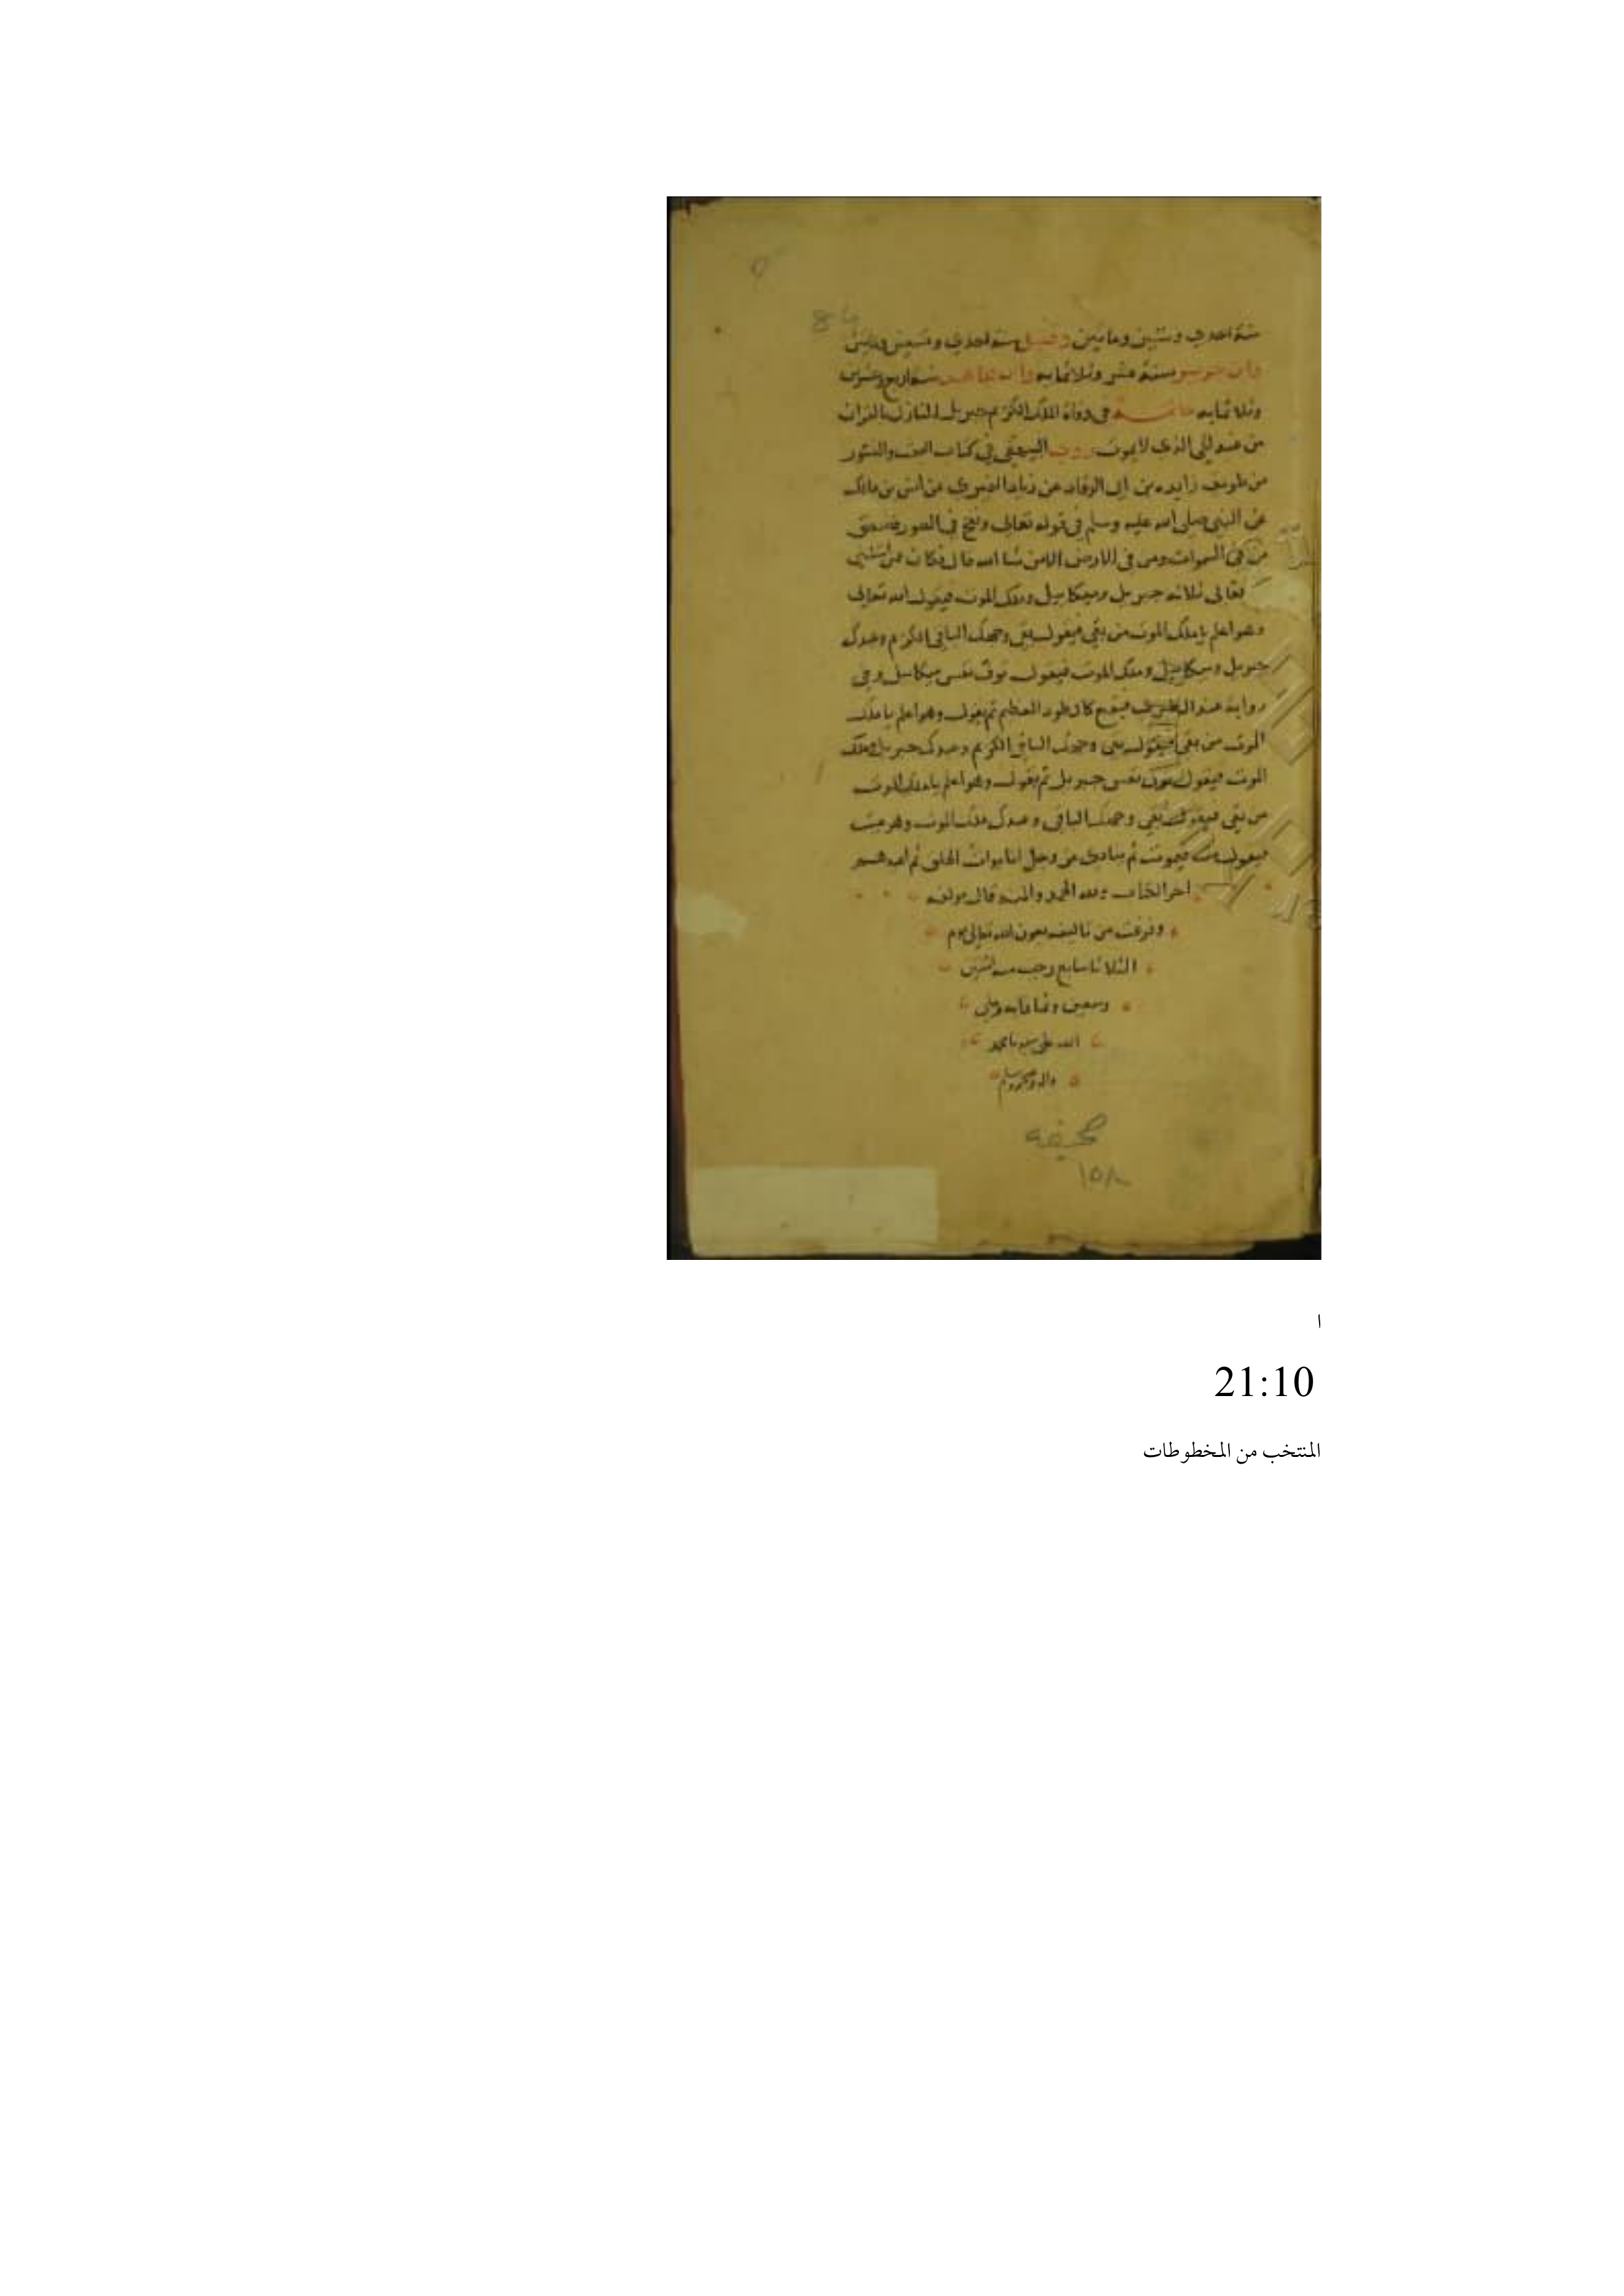 سنة احدي وستين ومايتين وقيل سنة احدي وتسعين ومايتين
وابن جرير سنة عشر وثلاثمايه وابن مجاهد سنة اربع وعشرين
وثلاثمايه خاتمة في وفاة الملك الكريم جبريل النازل بالقران
من عند الحي الذي لا يموت روي البيهقي في كتاب البعث والنشور
من طريق زايده بن ابي الرقاد عن زياد النميري عن انس بن مالك
عن النبي صلى الله عليه وسلم في قوله تعالى ونفخ في الصور فصعق
من في السموات ومن في الارض الا من شا الله قال فكان ممن استثنى
تعالى ثلاثه جبريل وميكاييل وملك الموت فيقول الله تعالى
وهو اعلم يا ملك الموت من بقي فيقول بقي وجهك الباقي الكريم وعبدك
جبريل وميكاييل وملك الموت فيقول توف نفس ميكاييل وفي
رواية عند فيقع كالطود العظيم ثم يقول وهو اعلم يا ملك
الموت من بقي فيقول بقي وجهك الباقي الكريم وعبدك جبريل وملك
الموت فيقول توف نفس جبريل ثم يقول وهو اعلم يا ملك الموت
من بقي فيقول بقي وجهك الباقي وعبدك ملك الموت وهو ميت
فيقول مت فيموت ثم ينادي انا بدات الخلق ثم اعيدهم
اخر الكتاب ولله الحمد والمنه قال مولفه
وفرغت من تاليفه بعون الله تعالى يوم
الثلاثا سابع رجب سنة اثنين
وسبعين وثمانمايه وصلى
الله على سيدنا محمد
واله وصحبه وسلم
صحيفه
١٥٨
ا
21:10
المنتخب من المخطوطات